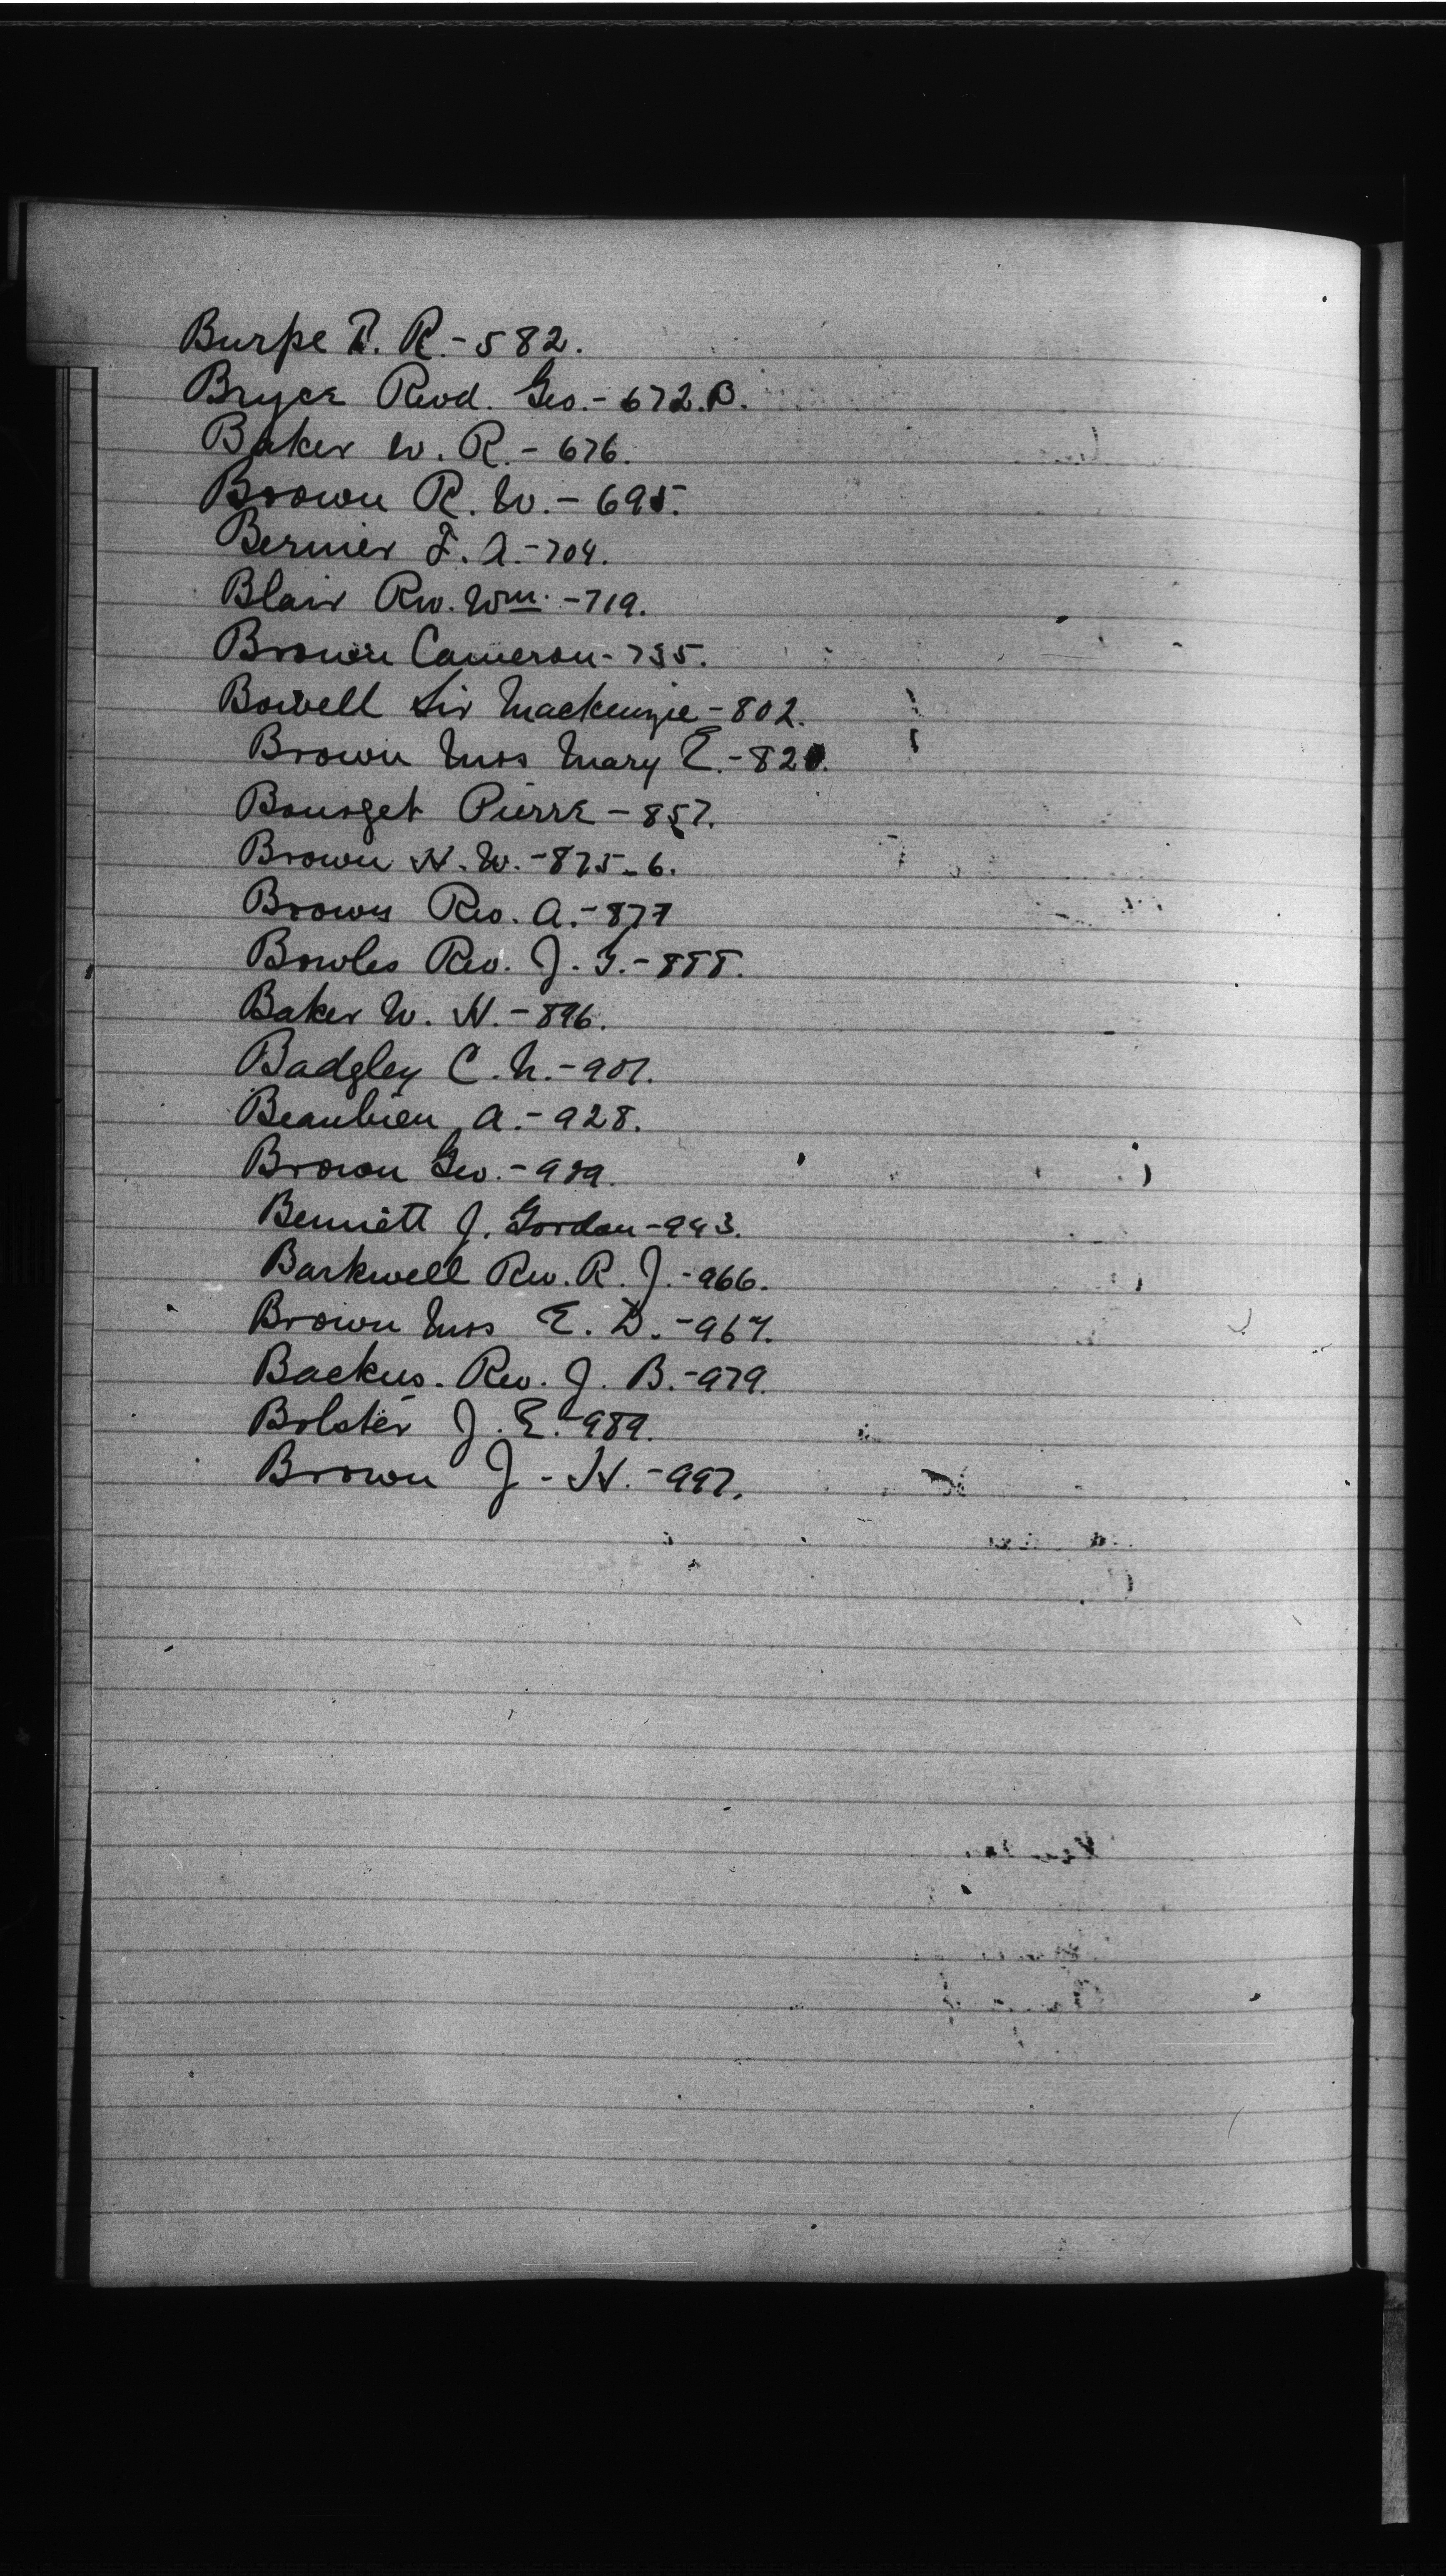 Burpe T. R. - 582.
Bryce Revd. Geo. - 672.B.
Baker W. R. - 676.
Brown R. W. - 695.
Bernier T. A. - 704.
Blair Rev. Wm. - 719.
Brown Cameron - 735.
Bowell Sir Mackenzie - 802.
Brown Miss Mary E. - 820.
Bourget Pierre - 857.
Brown H. W. - 875-6.
Brown Rev. A. - 877
Bowles Rev. J. G. - 888.
Baker W. H. - 896.
Badgley C. N. - 907.
Beaubien A. - 928.
Brown Geo. - 939.
Bennett J. Gordon - 943.
Barkwell Rev. R. J. - 966.
Brown Miss E. D. - 967.
Backus. Rev. J. B. - 979.
Bolster J. E. - 989.
Brown J. H. - 997.